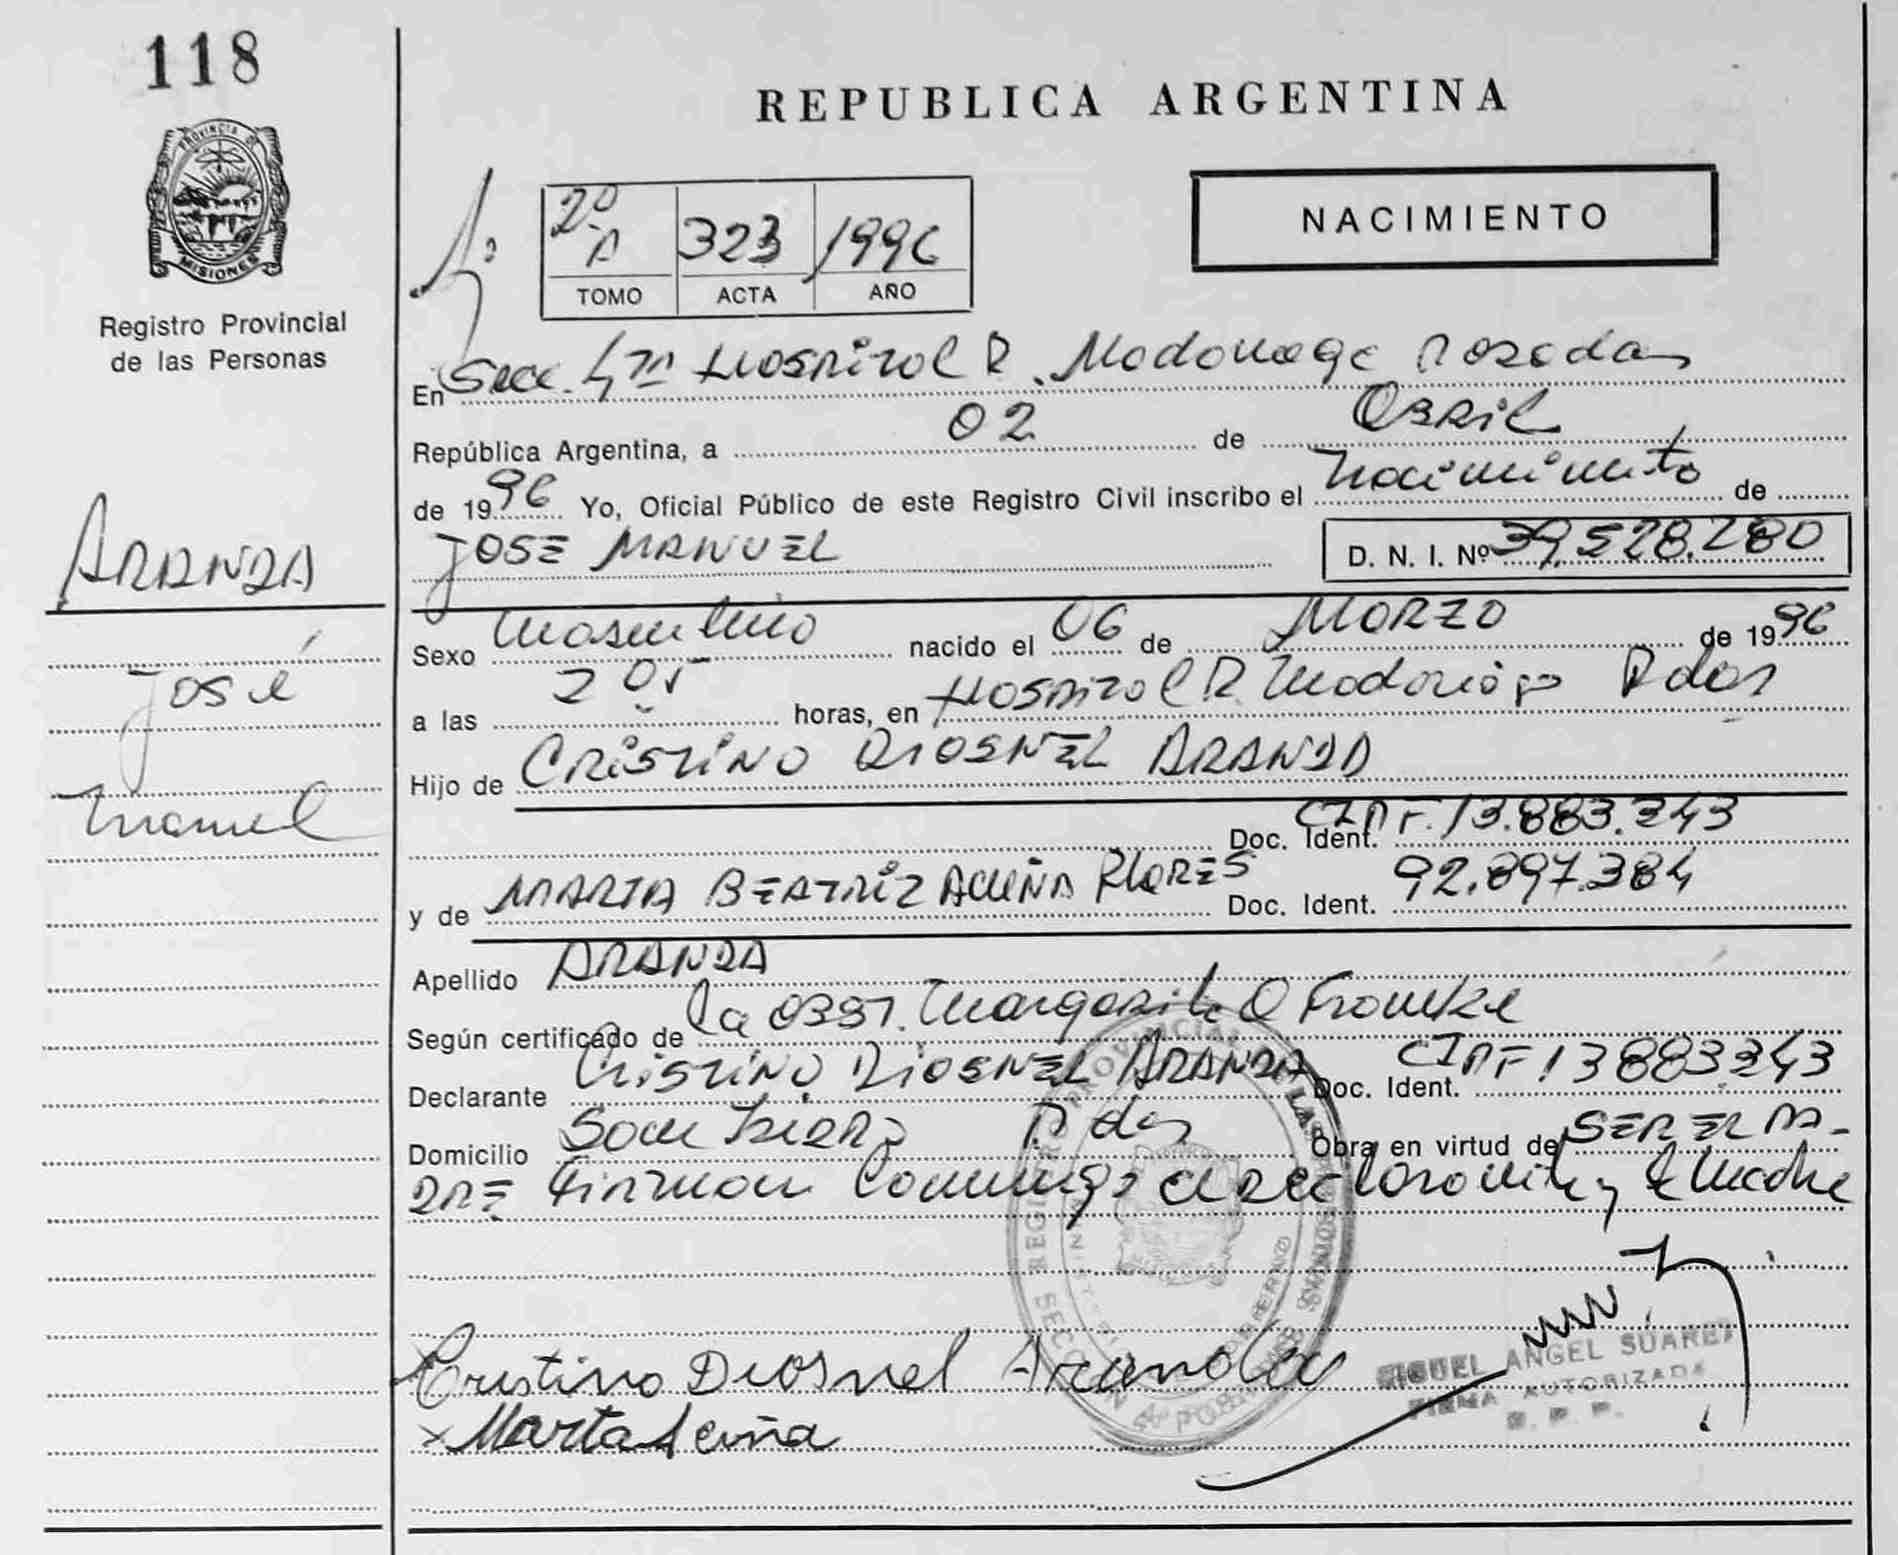 118
PROVINCIA DE
MISIONES
Registro Provincial
de las Personas
ARANDA
José
Manuel
REPUBLICA ARGENTINA
NACIMIENTO
2º
A 323 1996
TOMO ACTA AÑO
En Secc. 4ta Hospital R. Madariaga Posadas
República Argentina, a 02 de Abril
de 1996 Yo, Oficial Público de este Registro Civil inscribo el nacimiento de
JOSE MANUEL D. N. I. Nº 39.528.280
Sexo masculino nacido el 06 de MARZO de 1996
a las 2 horas, en Hospital R. Madariaga Pdas
Hijo de CRISTINO DIOSNEL ARANDA
Doc. Ident. CIPF. 13.883.343
y de MARTA BEATRIZ ACUÑA FLORES Doc. Ident. 92.897.384
Apellido ARANDA
Según certificado de la OBST. Margarita Franke
Declarante CRISTINO DIOSNEL ARANDA Doc. Ident. CIPF 13883343
Domicilio Pdas Obra en virtud de SER EL PA-
DRE Firman Conmigo el declarante y la Madre
Cristino Diosnel Aranda
x Marta Acuña
MIGUEL ANGEL SUAREZ
FIRMA AUTORIZADA
R. P. P.